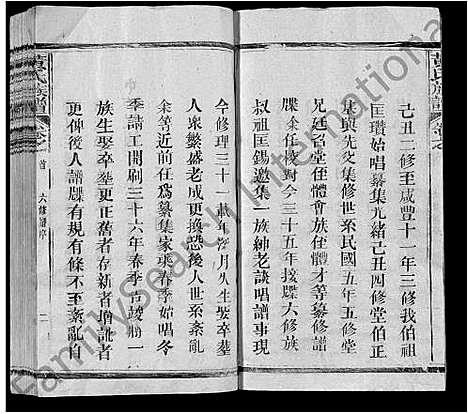 黃氏族譜
己丑二修至咸豐十一年三修我伯祖
匡瓚始唱纂集光緒己丑四修堂伯正
集興先爻集修世系民國五年五修堂
兄廷名堂侄體會族侄體才等纂修譜
牒余任校對今三十五年按牒六修族
叔祖匡錫邀集一族紳老談唱譜事現
今修理三十一世年月久生娶卒塟
人衆繁盛老成更換恐後人世系紊亂
余等近前在爲纂集家乘春季始唱冬
季請工開刷三十六年春季告竣將一
族生娶卒塟更正舊者存新者增訛者
更俾後人譜牒有規有條不至紊亂自
黃氏族譜
首
六修譜序
二
FamilySearch International